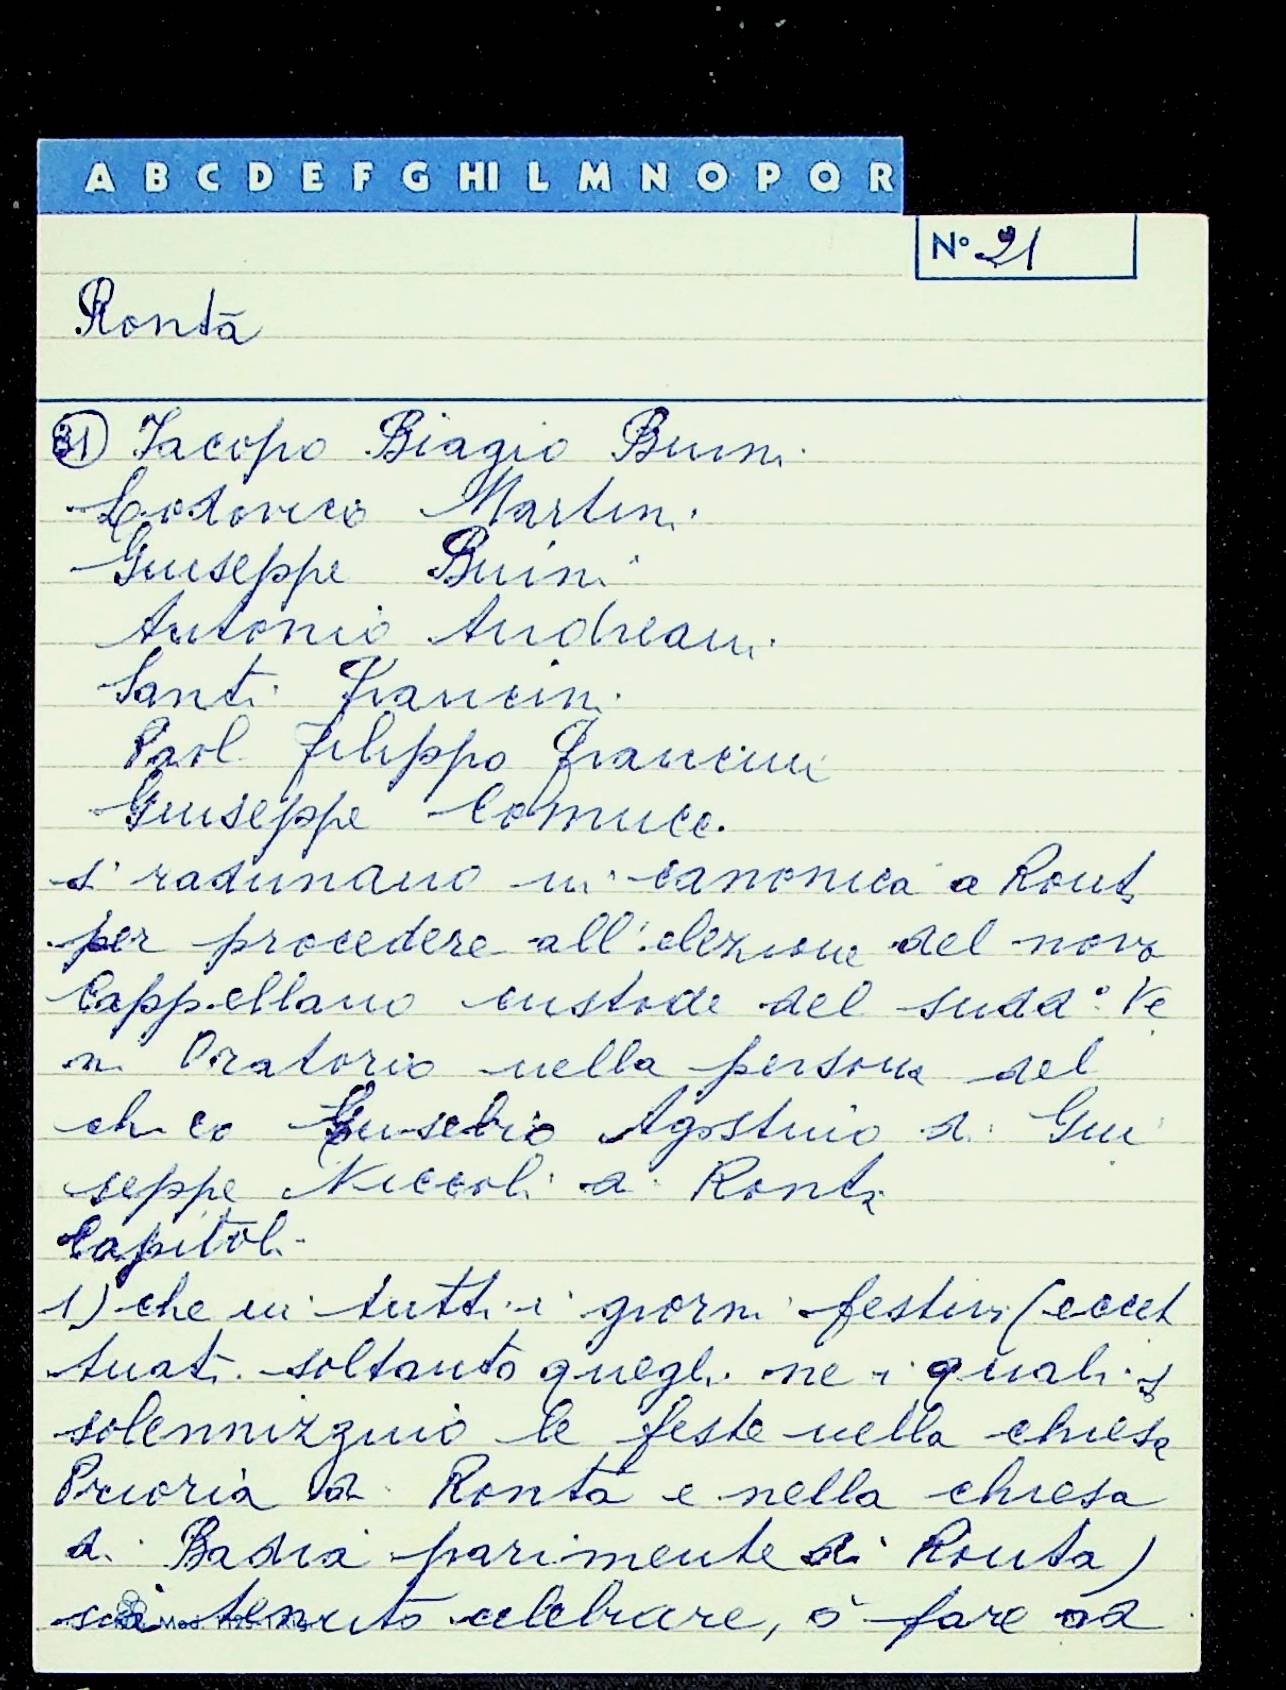 A B C D E F G HI L M N O P Q R
N° 21
Ronta
31) Iacopo Biagio Buini
Lodovico Martini
Giuseppe Buini
Antonio Andreani
Santi Francini
Paol Filippo Francini
Giuseppe Comucci
si radunano in canonica a Ronta
per procedere all'elezione del novo
Cappellano custode del sudd° Ve
n. Oratorio nella persona del
ch co Eusebio Agostino di Giu
seppe Niccoli di Ronta
Capitoli
1) che in tutti i giorni festivi (eccet
tuati soltanto quegli ne i quali si
solennizzino le feste nella chiesa
Prioria di Ronta e nella chiesa
di Badia parimente di Ronta)
sia tenuto celebrare, o fare ad